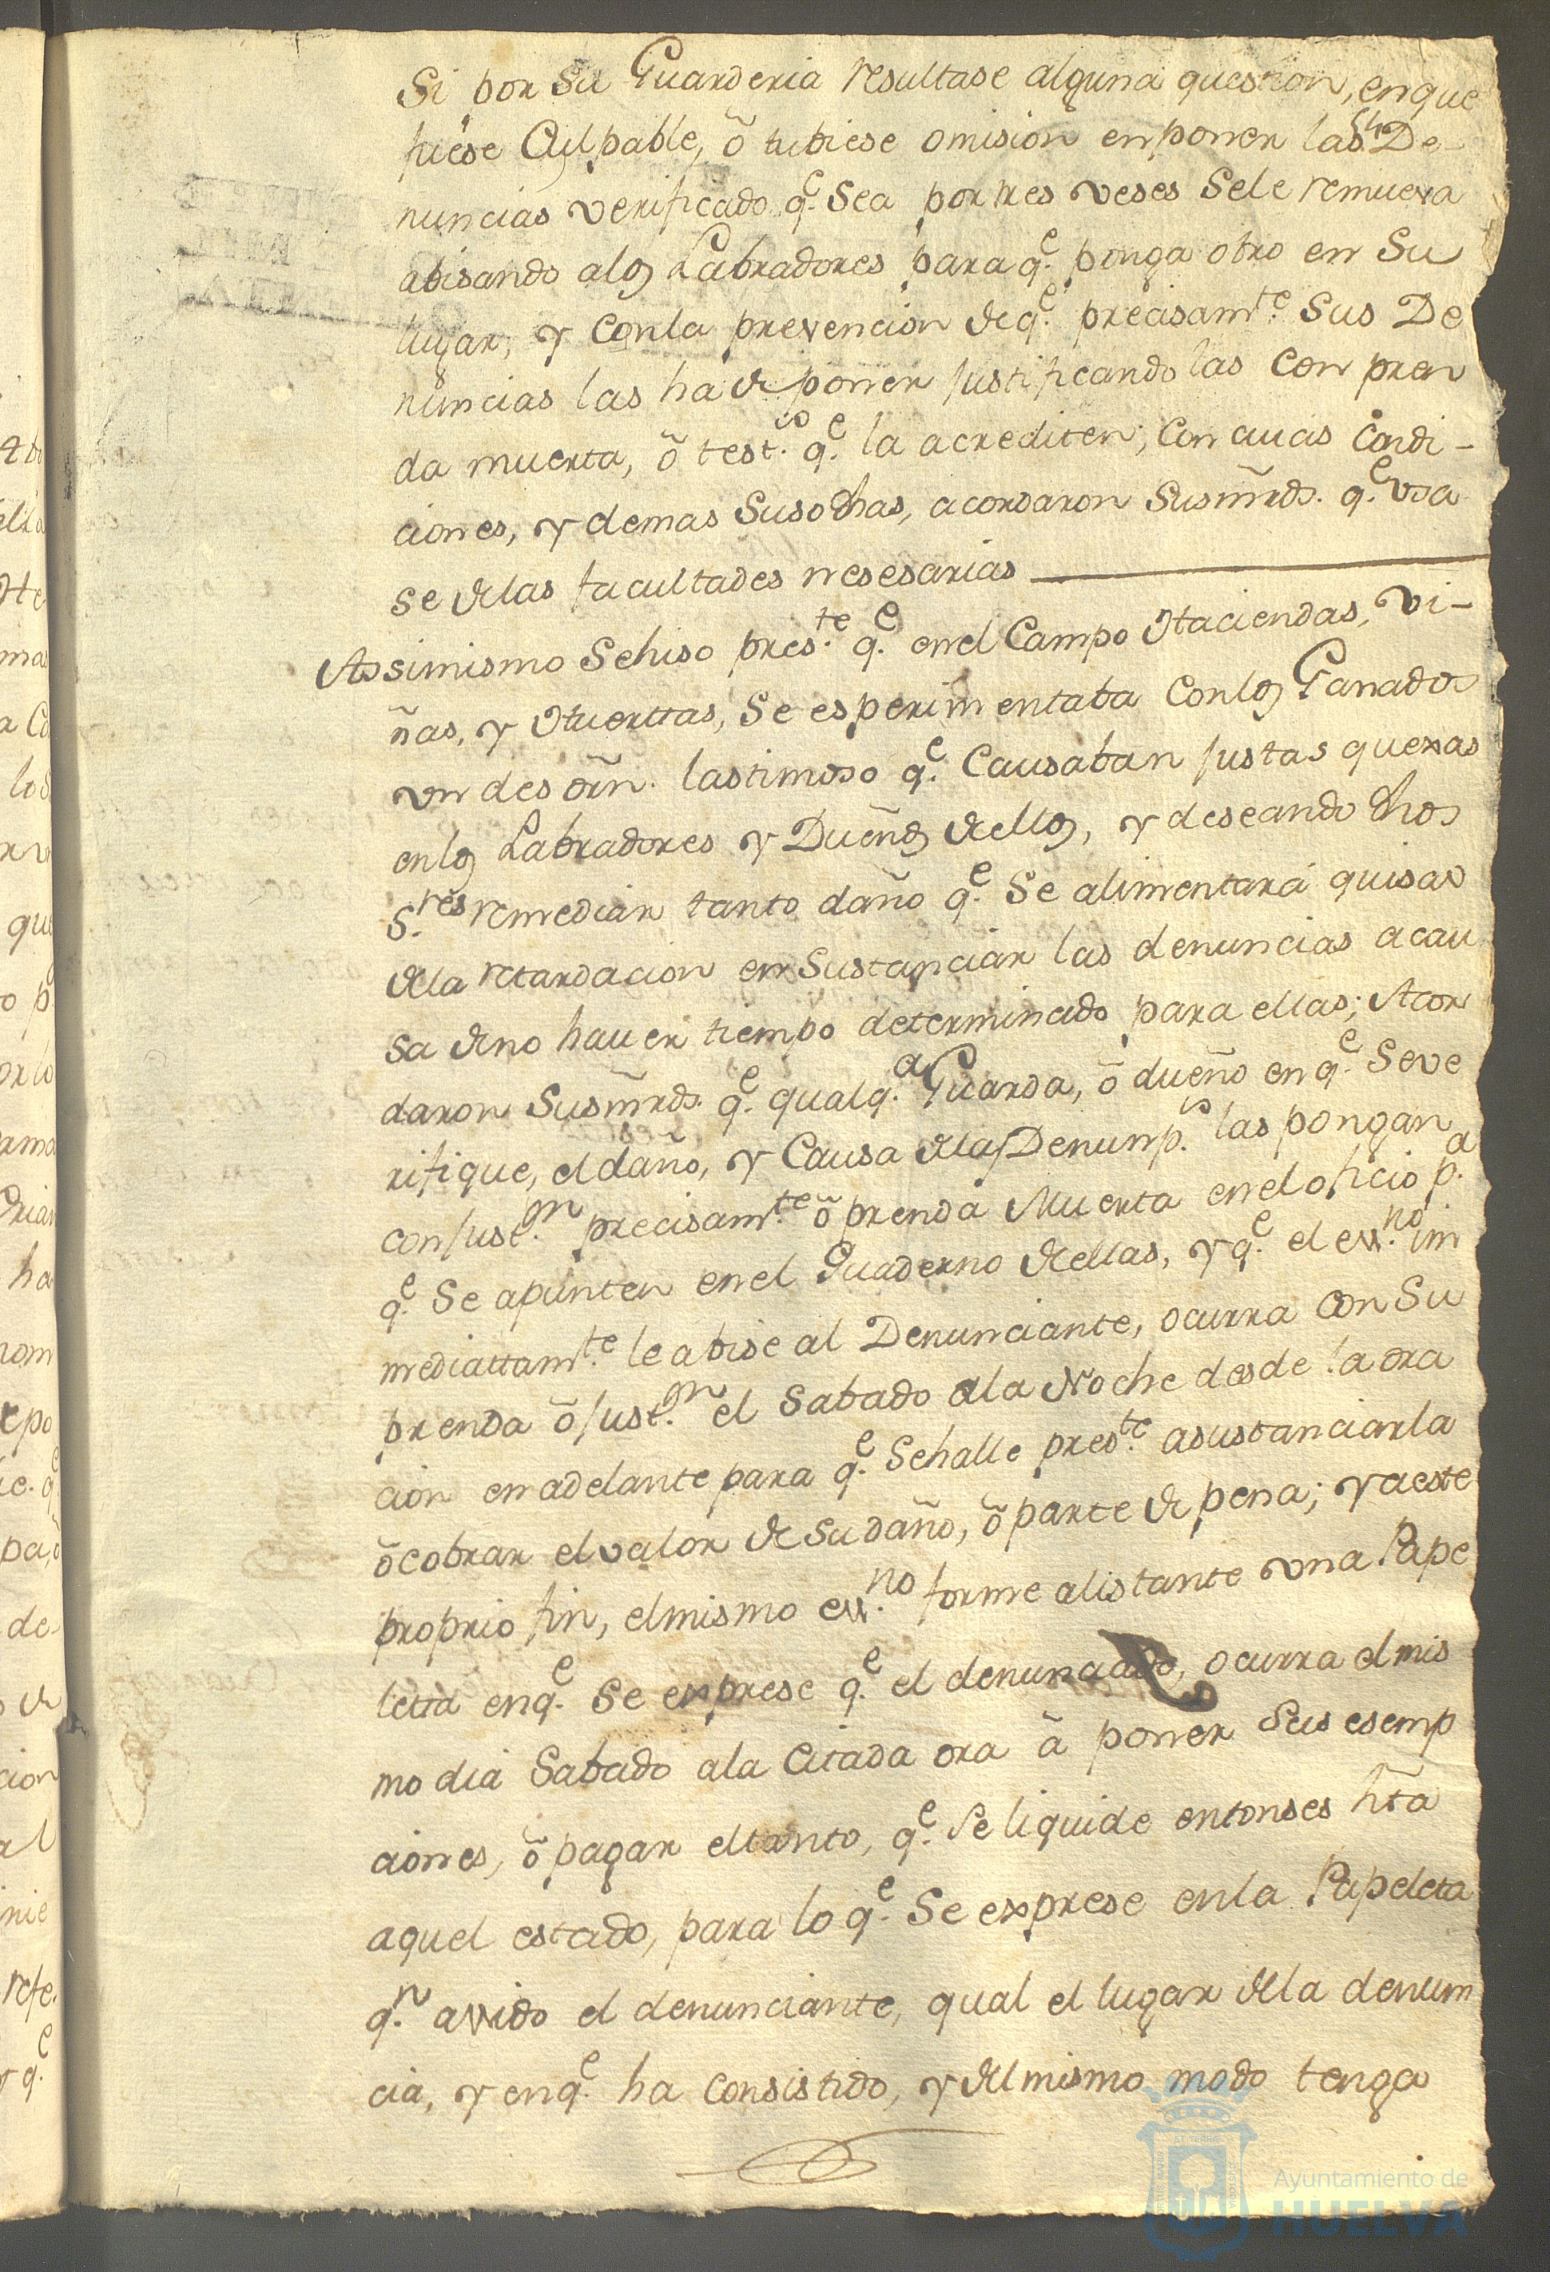 Si por su Guarderia resultase alguna question, en que
fuese Culpable, õ tubiese omision en poner las De-
nuncias verificado q.e Sea por tres veses Sele remueva
abisando alos Labradores para q.e ponga otro en Su
lugar, y con la prevencion de q.e precisam.te Sus De
nuncias las ha de poner justificandolas con pren
da muerta, õ test.go q.e la acrediten; con cuias Condi-
ciones, y demas Susodhas, acordaron Susm̃rds. q.e vsa
se delas facultades nesesarias
Assimismo Sehiso pres.te q.e en el Campo Haciendas, Vi-
ñas, y Huerttas, Se esperimentaba Conlos Ganados
vn desorn̄. lastimoso q.e Causaban justas quexas
enlos Labradores y Dueños dellos, y deseando dhos
S.res remediar tanto daño q.e Se alimentará quisas
dela retardacion en Sustanciar las denuncias acau
sa deno hauer tiempo determinado para ellas; Acor
daron Susm̃rds. q.e qualq.a Guarda, õ dueño en q.e Seve
rifique, el daño, y Causa delas Denunp.s las pongan
con just.on precisam.te õ prenda Muerta en el oficio p.a
q.e Se apunten en el Quaderno dellas, y q.e el ess.no im
mediattam.te le abise al Denunciante, ocurra con Su
prenda õ just.on el Sabado ala Noche desde la ora
cion en adelante para q.e Sehalle pres.te asustanciarla
õ cobrar el valor de su daño, õ parte de pena; y aeste
proprio fin, el mismo ess.no forme alistante vna Pape
letta en q.e Se exprese q.e el denunciado, ocurra el mis
mo dia Sabado ala Citada ora ã poner Sus esemp
ciones, õ pagar el tanto, q.e Se liquide entonses hta
aquel estado, para lo q.e Se exprese en la Papeleta
q.n a sido el denunciante, qual el lugar dela denun
cia, y en q.e ha Consistido, y del mismo modo tenga
Ayuntamiento de
HUELVA